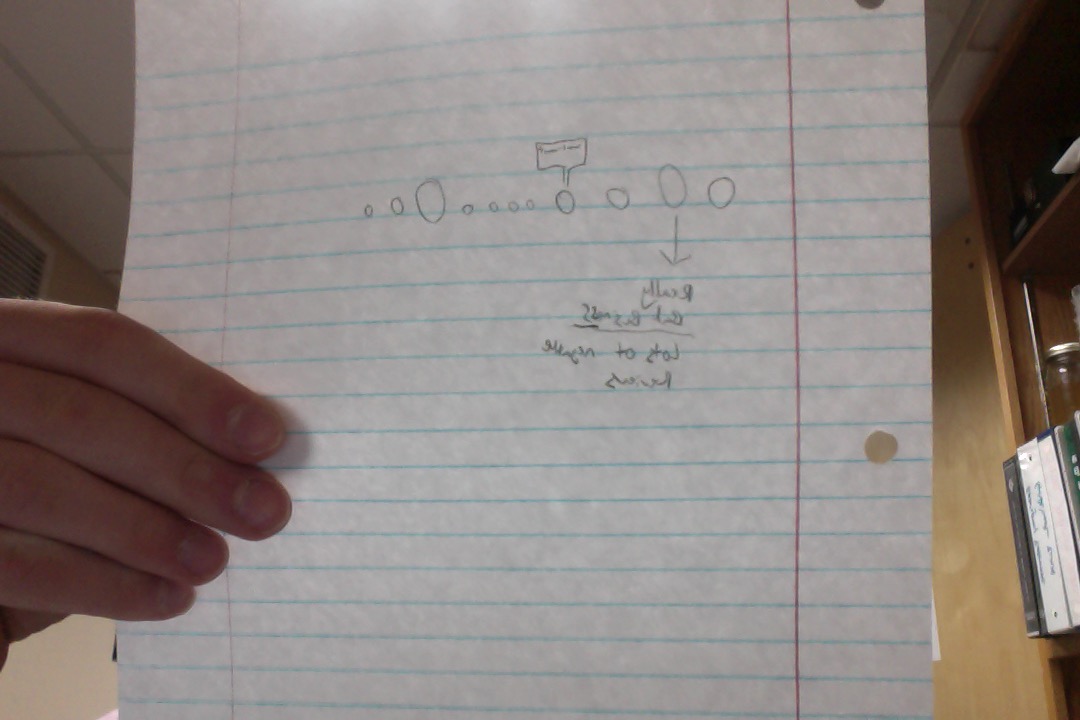 Really
Bad Business
Lots of negative
Reviews